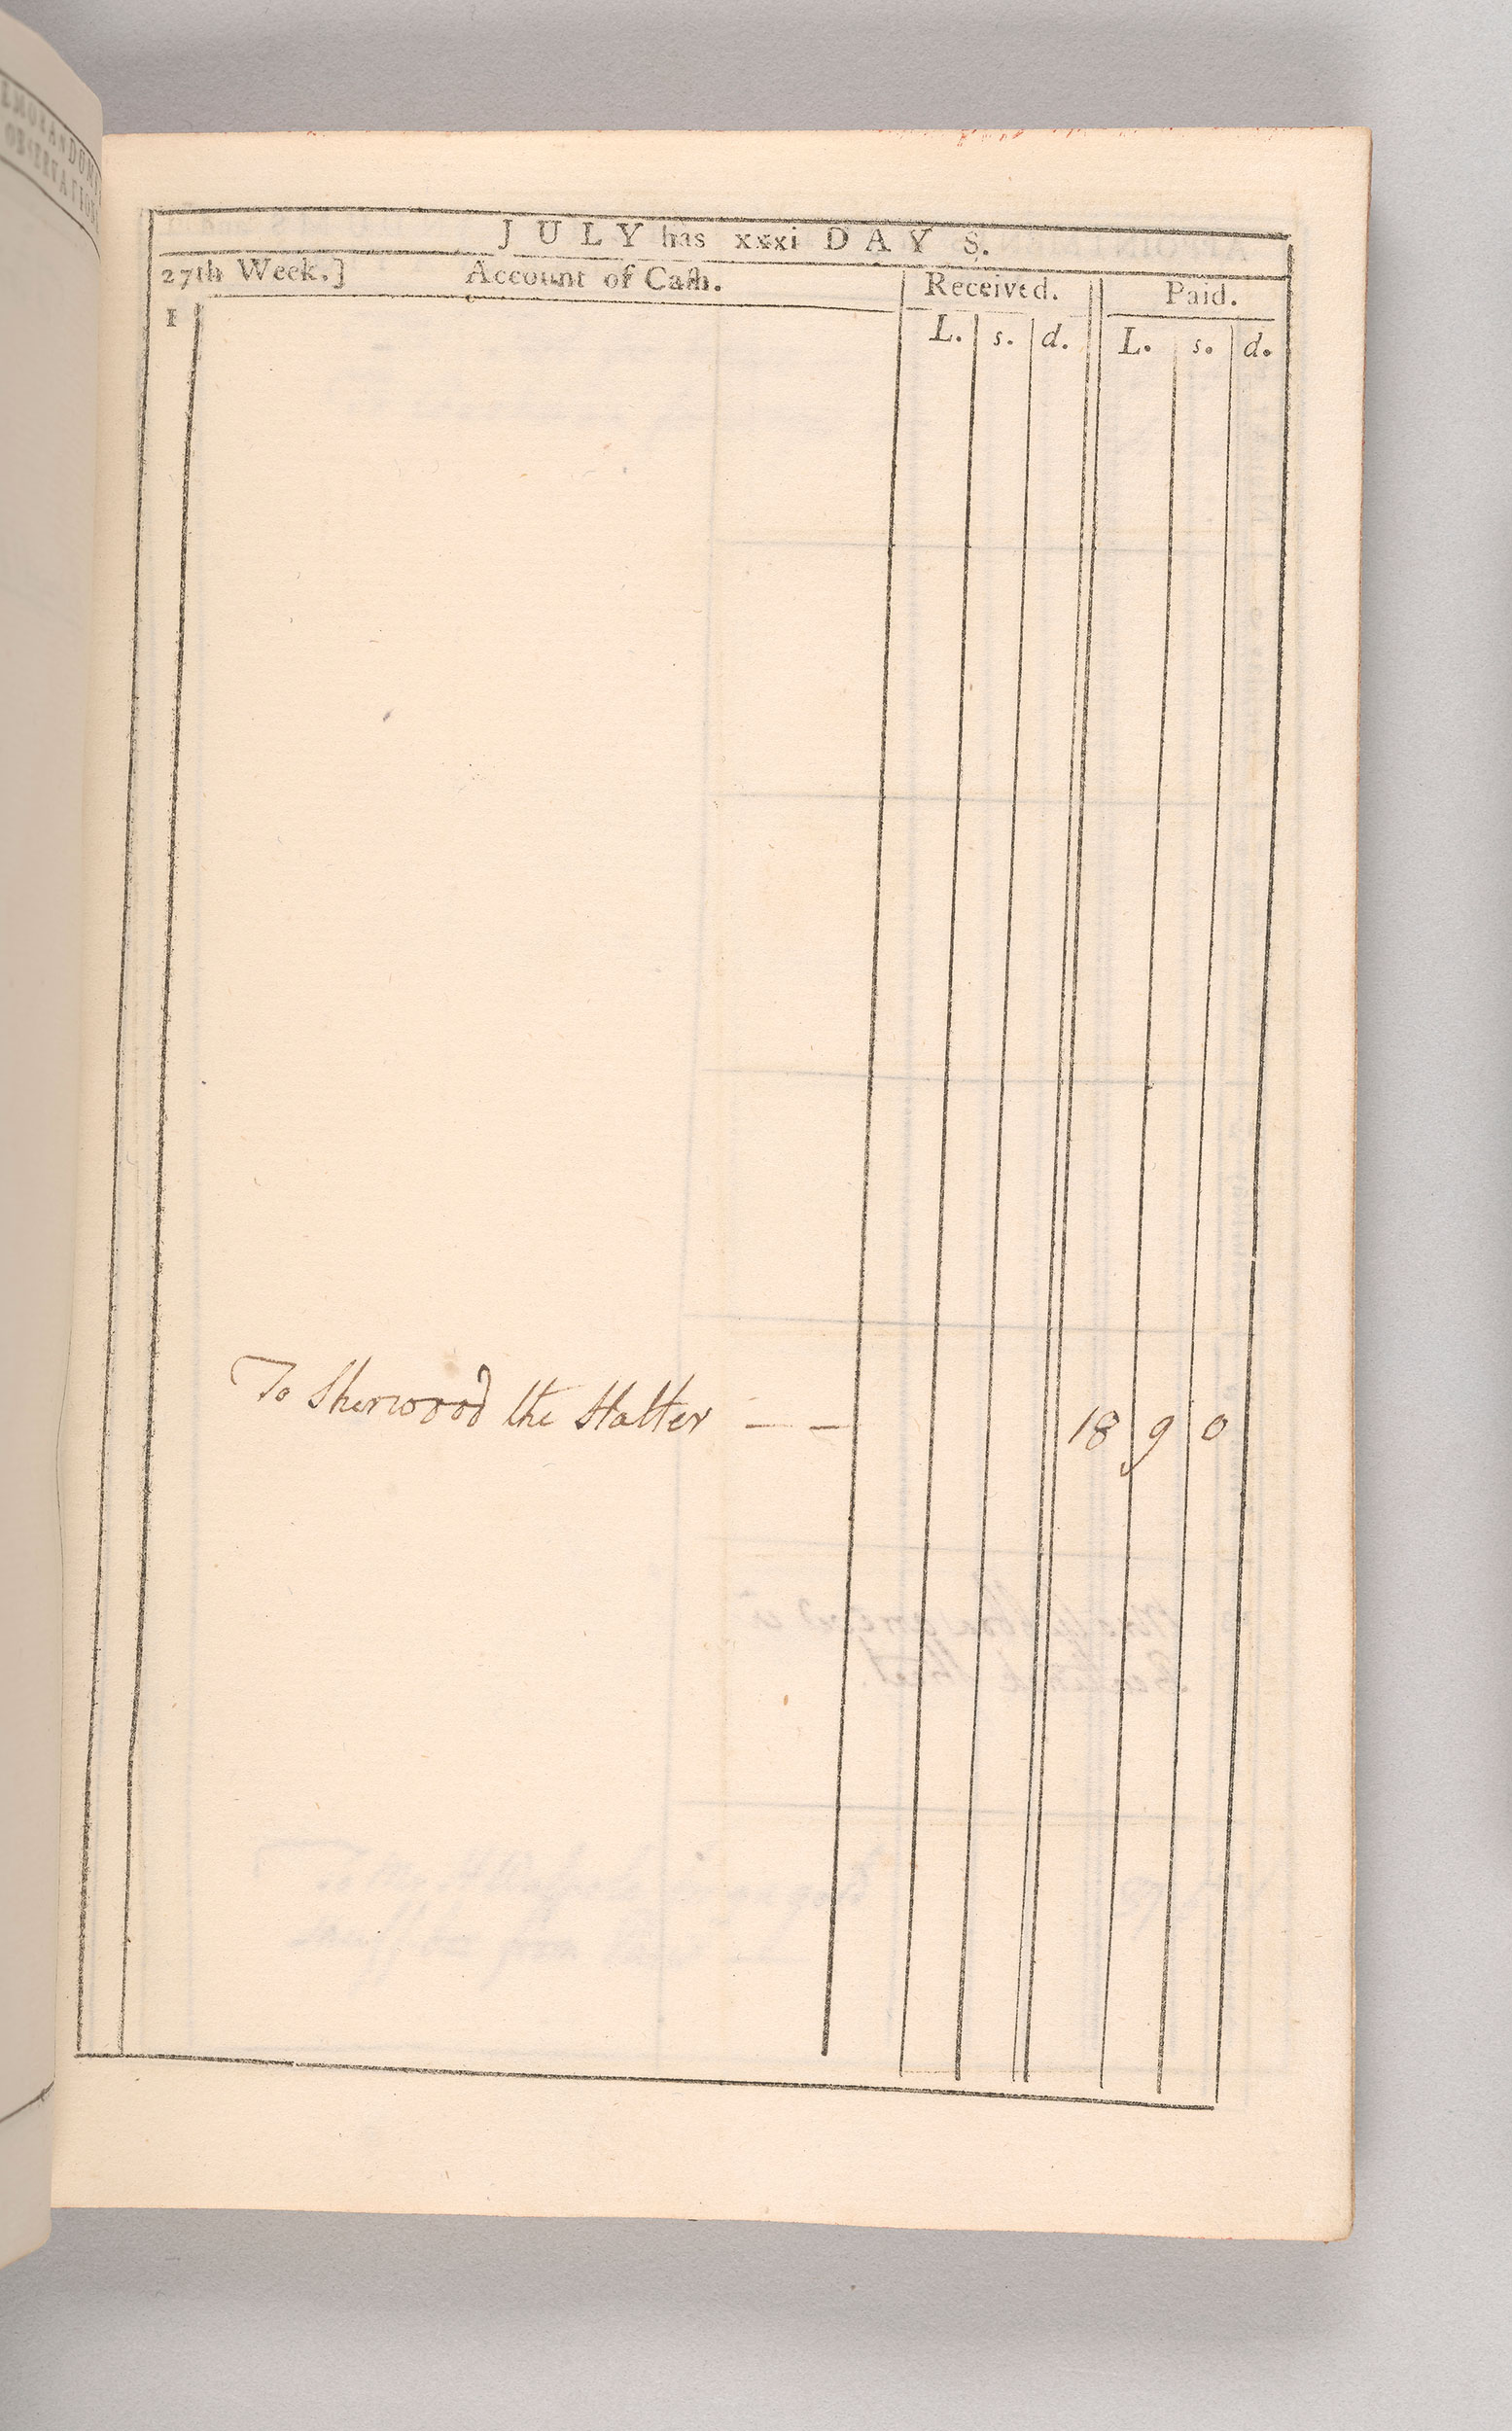 EMORANDUMS
OBSERVATIONS
JULY has xxxi DAYS.
27th Week.] Account of Caſh. Received. Paid.
1 L. s. d. L. s. d.
To Sherwood the Hatter — — 18 9 0